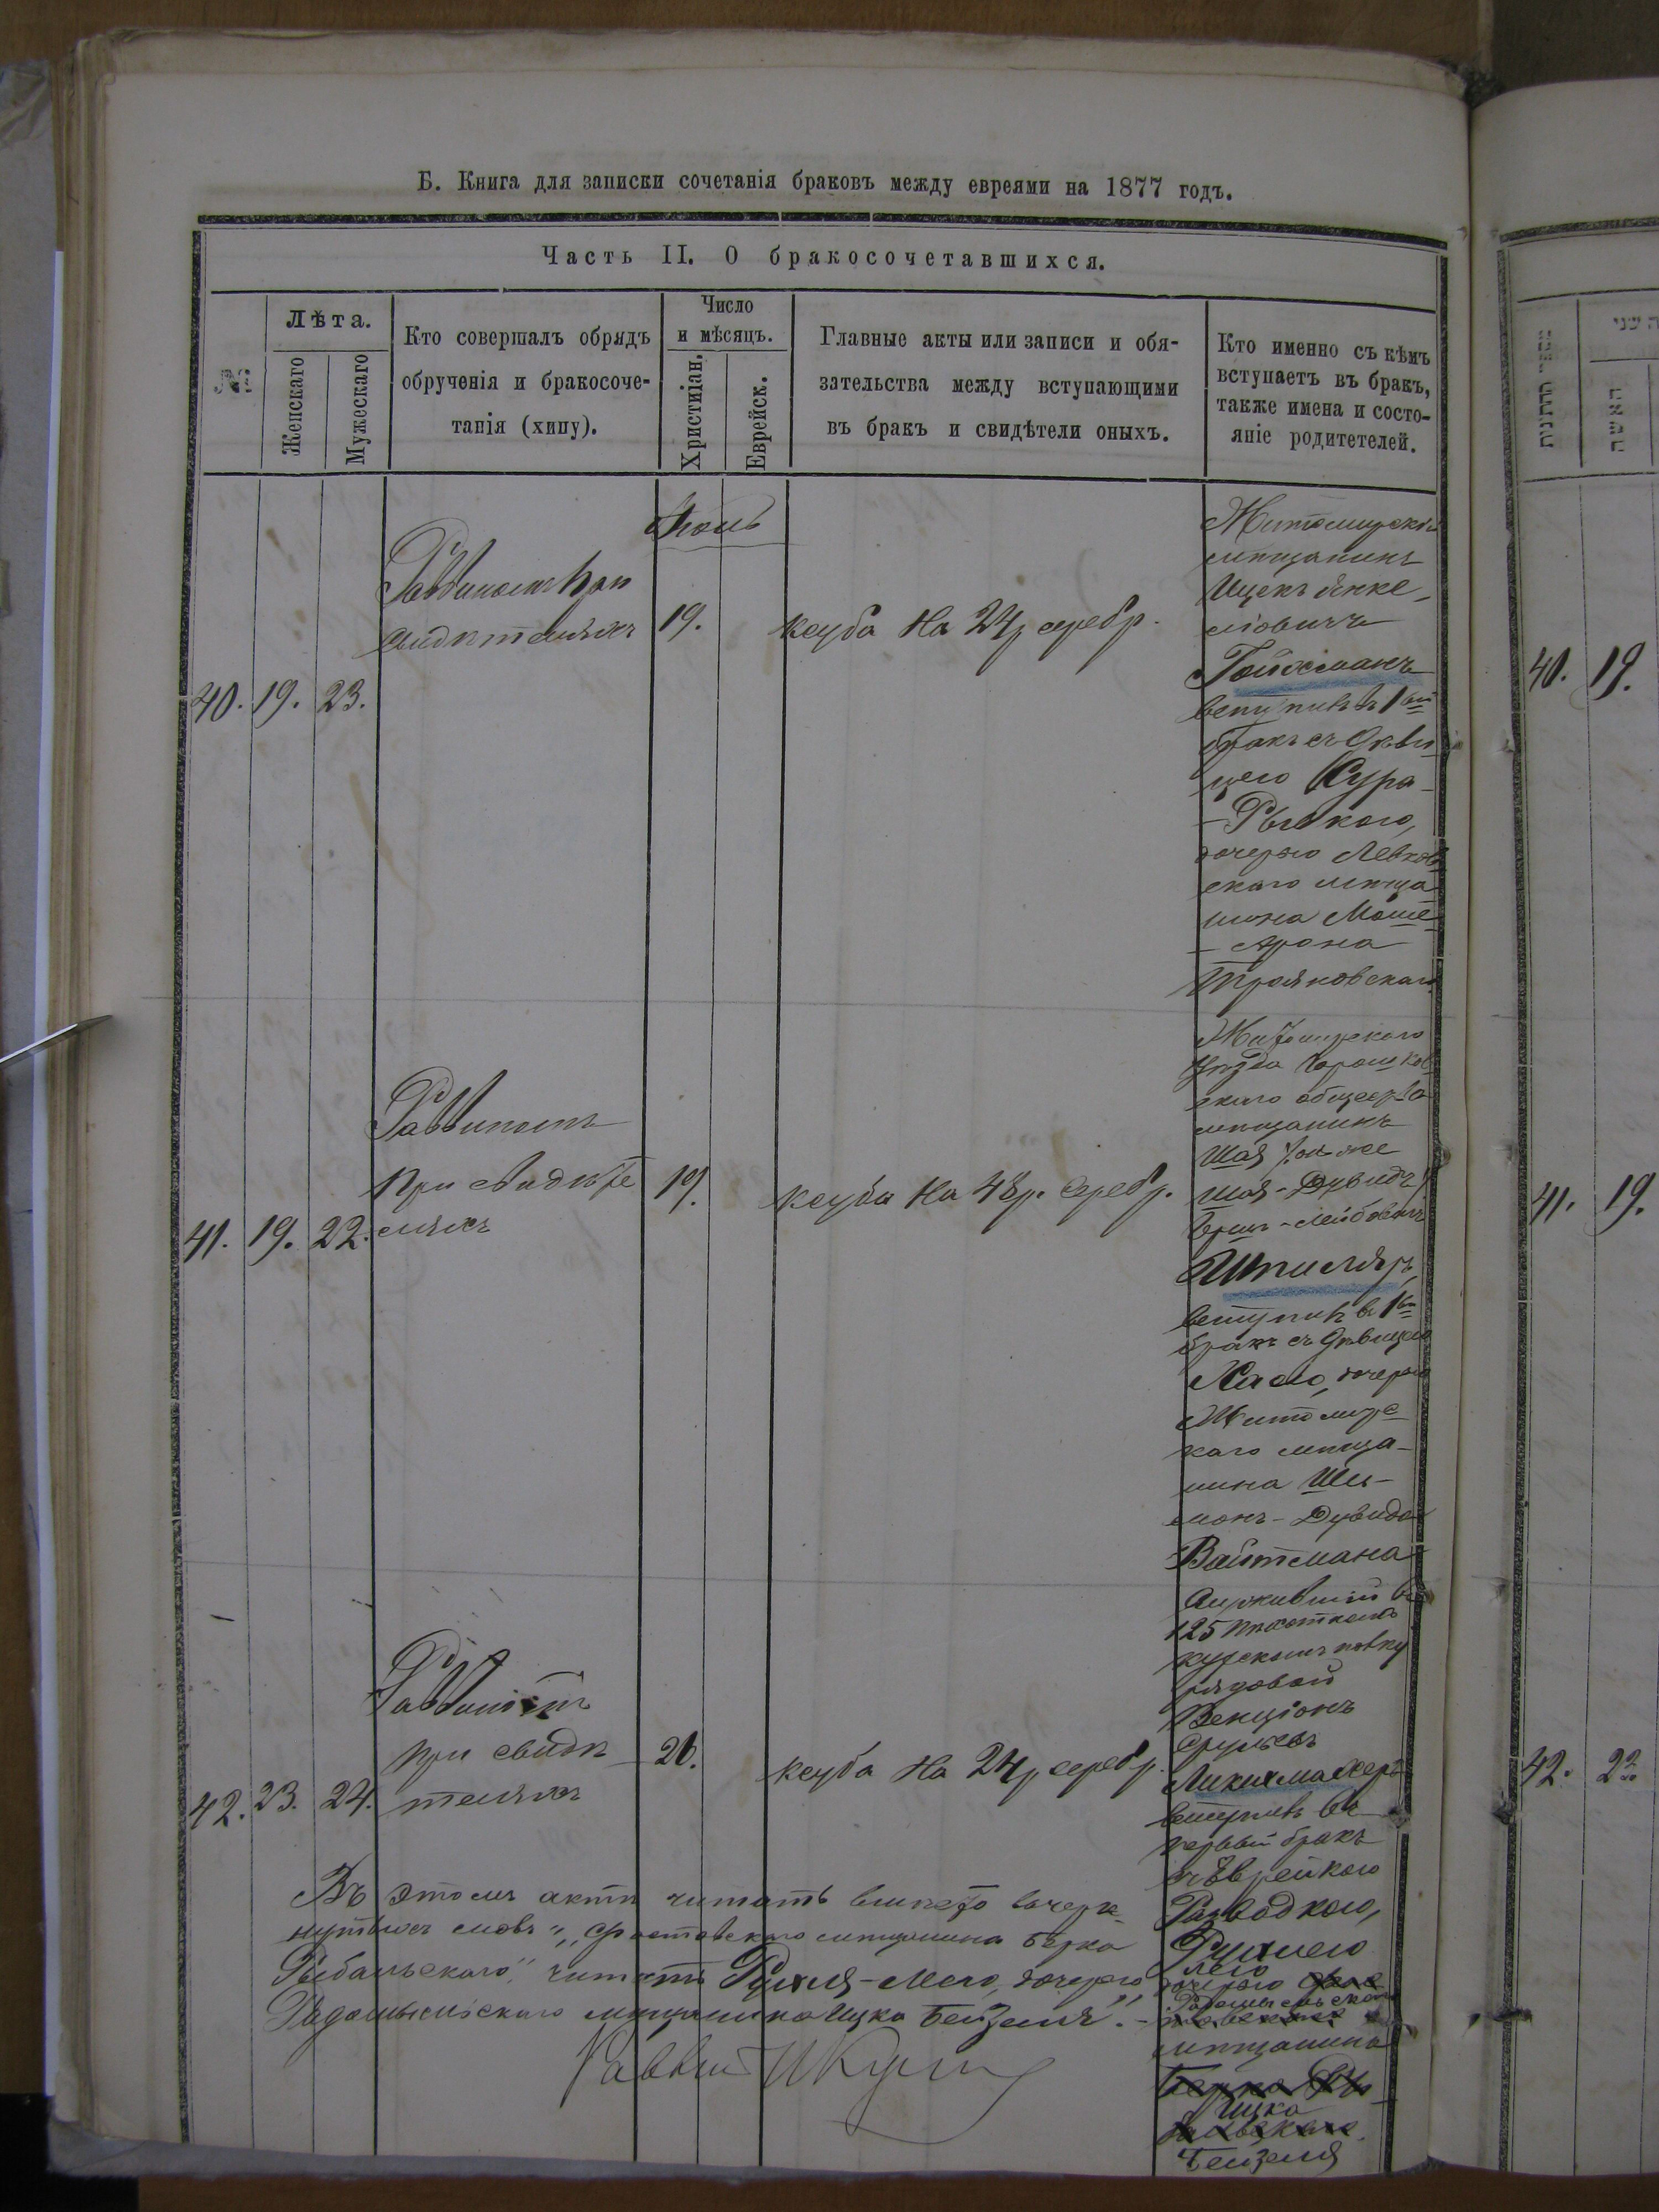 Б. Книга для записки сочетанія браковъ между евреями на 1877 годъ.
Часть II. О бракосочетавшихся.
№
Лѣта.
Женскаго
Мужескаго
Кто совершалъ обрядъ
обрученія и бракосоче-
танія (хипу).
Число
и мѣсяцъ.
Христіан.
Еврейск.
Главные акты или записи и обя-
зательства между вступающими
въ бракъ и свидѣтели оныхъ.
Кто именно съ кѣмъ
вступаетъ въ бракъ,
также имена и состо-
яніе родитетелей.
40. 19. 23.
Раввиномъ при
свидѣтеляхъ
19.
Ксуба на 24 р серебр.
Житомирскій
мѣщанинъ
Ицекъ Янке-
левичъ
Гойхманъ
вступилъ въ 1ый
бракъ съ дѣви
цею Сура-
-Рывкою,
дочерью Левков
скаго мѣща
нина Моше
-Арона
Трояновскаго
41. 19. 22.
Раввиномъ
при свидѣте
ляхъ
19.
Ксуба на 48 р. серебр.
Житомирскаго
уѣзда
скаго общества
мѣщанинъ
Шая онъ же
Шая-Дувидъ
-Лейбовичъ
вступилъ въ 1ый
бракъ съ дѣвицею
Хаею, дочерью
Житомирс
каго мѣща-
нина Ши-
монъ-Дувида
Вайтмана
42. 23. 24.
Раввиномъ
при свидѣ
теляхъ
20.
Ксуба на 24 р серебр.
125 пѣхотномъ
курскомъ полку
рядовой
Бенціонъ
Сруль
Ликихмахеръ
вступилъ въ
первый бракъ
съ Еврейкою
Разводкою,
Рухлею
Лею
дочерью
Радомысльскаго
мѣщанина
Ицка
Бейзеля
Въ этомъ актѣ читать вмѣсто зачерк-
нутыхъ словъ „Фастовскаго мѣщанина Берка
Рыбальскаго", читать Рухля-Лею, дочерью
Радомысльскаго мѣщанина Ицка Бейзеля". -
Раввинъ
40. 19.
41. 19.
42.